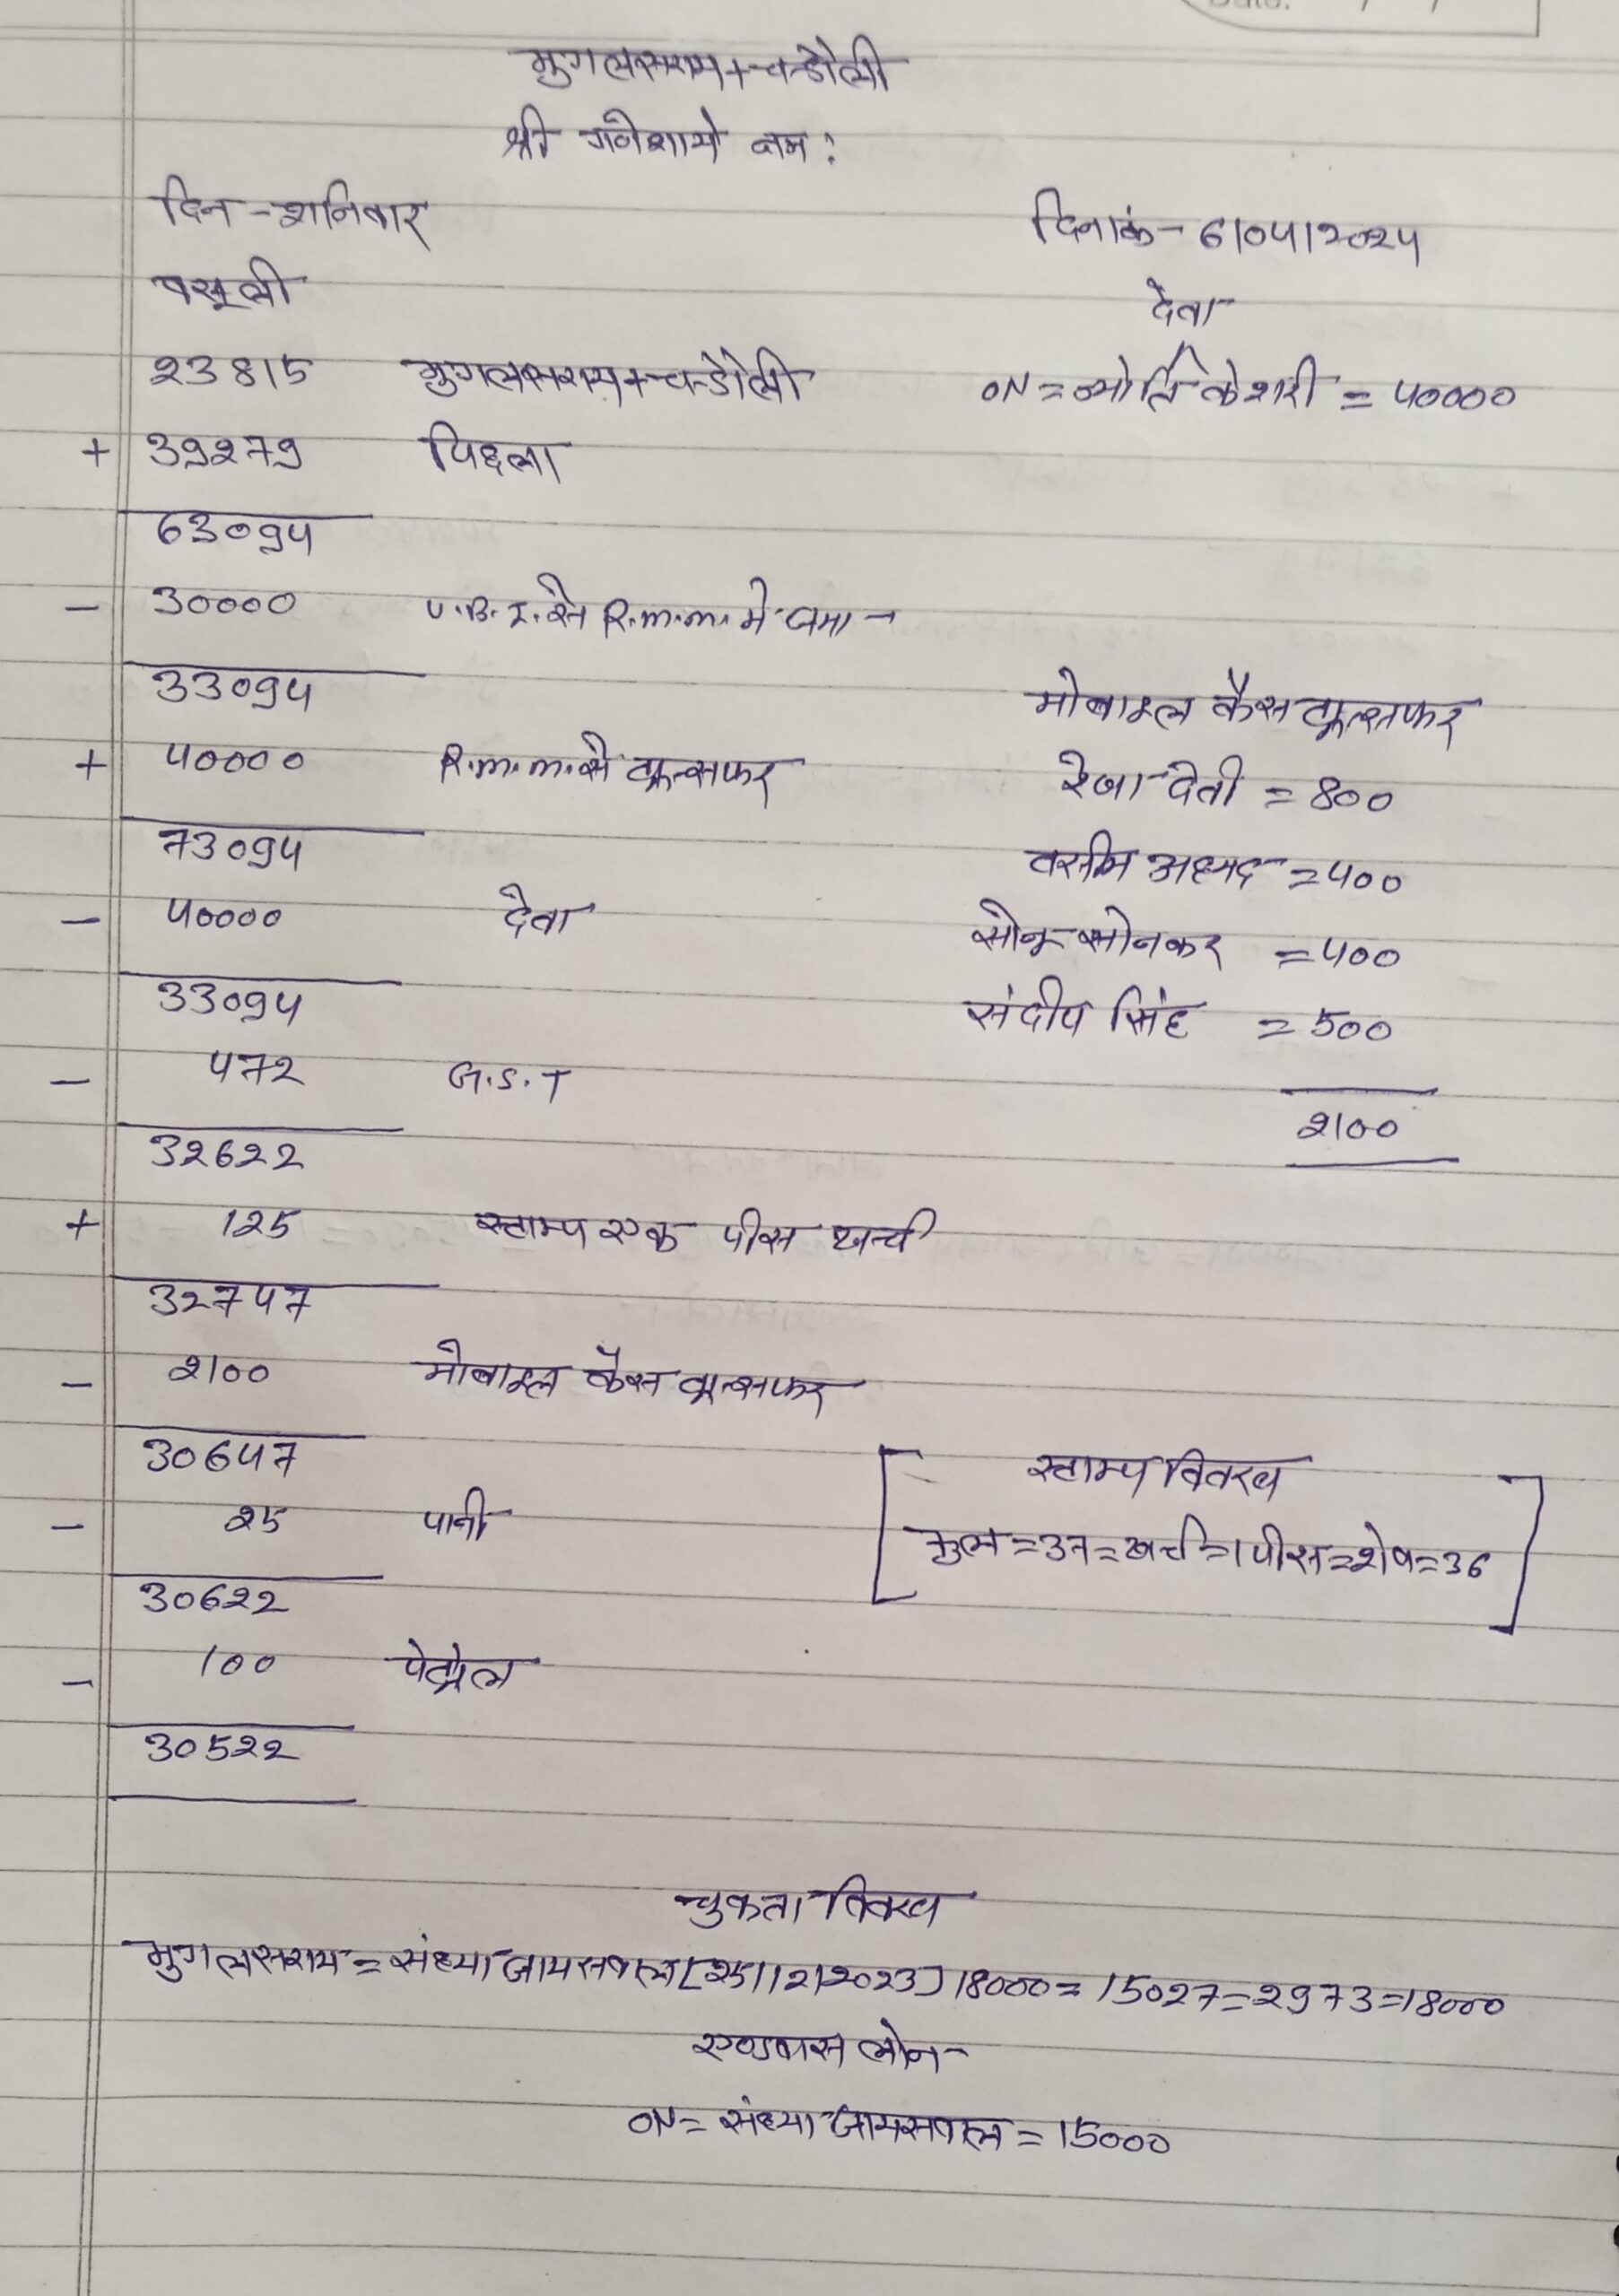 मुगलसराय+चन्दौली
श्री गनेशाये नम:
दिन - शनिवार
दिनांक - 6/04/2024
वसूली
देना
23815 मुगलसराय+चन्दौली
ON = ज्योति केशरी = 40000
+ 39279 पिछला
63094
- 30000 U.B.I. से R.M.M. मे जमा -
33094
मोबाइल कैस ट्रान्सफर
+ 40000 R.M.M. से ट्रान्सफर
रेखा देवी = 800
73094
वसीम अहमद = 400
- 40000 देना
सोनू सोनकर = 400
33094
संदीप सिंह = 500
- 472 G.S.T
2100
32622
+ 125 स्टाम्प एक पीस खर्च
32747
- 2100 मोबाइल कैस ट्रान्सफर
30647
स्टाम्प विवरण
- 25 पानी
कुल = 37 = खर्च = 1 पीस = शेष = 36
30622
- 100 पेट्रोल
30522
चुकता विवरण
मुगलसराय = संध्या जायसवाल [25/12/2023] 18000 = 15027 = 2973 = 18000
एडवांस लोन -
ON = संध्या जायसवाल = 15000